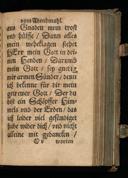 vom Abendmahl.
aus Gnaden mein trost
und hülffe / Dann alles
mein unbefleget stehet
HErr mein Gott in dei-
nen Henden / Darumb
mein Gott / sey gnedig
mir armen Sünder / denn
ich bekenne für dir mein
getrewer Gott / Der du
bist ein Schöpffer Him-
mels und der Erden / das
ich leider viel gesündiget
habe wider dich / und nicht
alleine mit gedancken /
worten